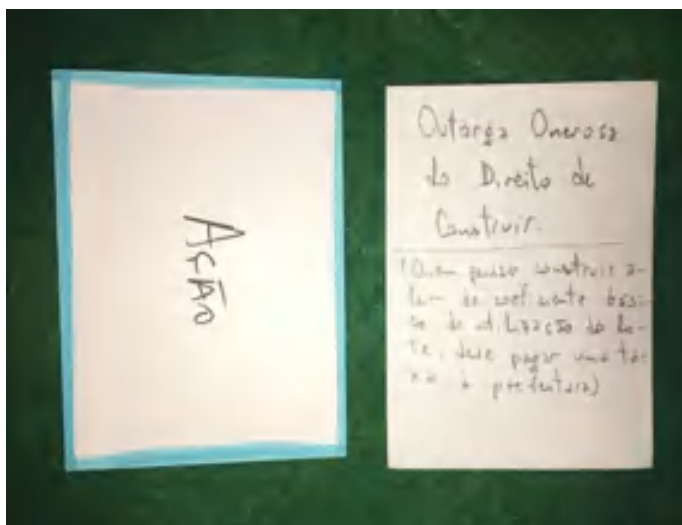 Ação
Outorga Onerosa
do Direito de
Construir.
(Quem quiser construir a-
lém do coeficiente bási-
co de utilização do lo-
te, deve pagar uma ta-
xa à prefeitura)